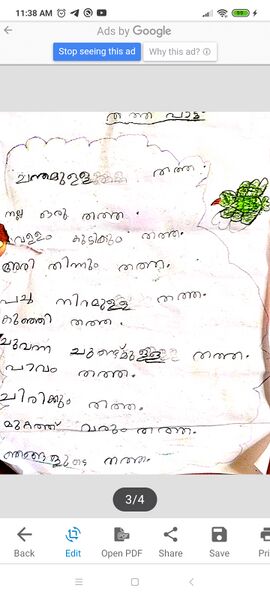 11:38 AM
Ads by Google
Stop seeing this ad Why this ad?
തത്ത പാട്ട്
ചന്തമുള്ള തത്ത.
നല്ല ഒരു തത്ത.
വെള്ളം കുടിക്കും തത്ത.
അരി തിന്നും തത്ത.
പച്ച നിറമുള്ള തത്ത.
കുഞ്ഞി തത്ത.
ചുവന്ന ചുണ്ടുമുള്ള തത്ത.
പാവം തത്ത.
ചിരിക്കും തത്ത.
മുറ്റത്ത് വരും തത്ത.
ഞങ്ങളുടെ തത്ത.
3/4
Back Edit Open PDF Share Save Pri